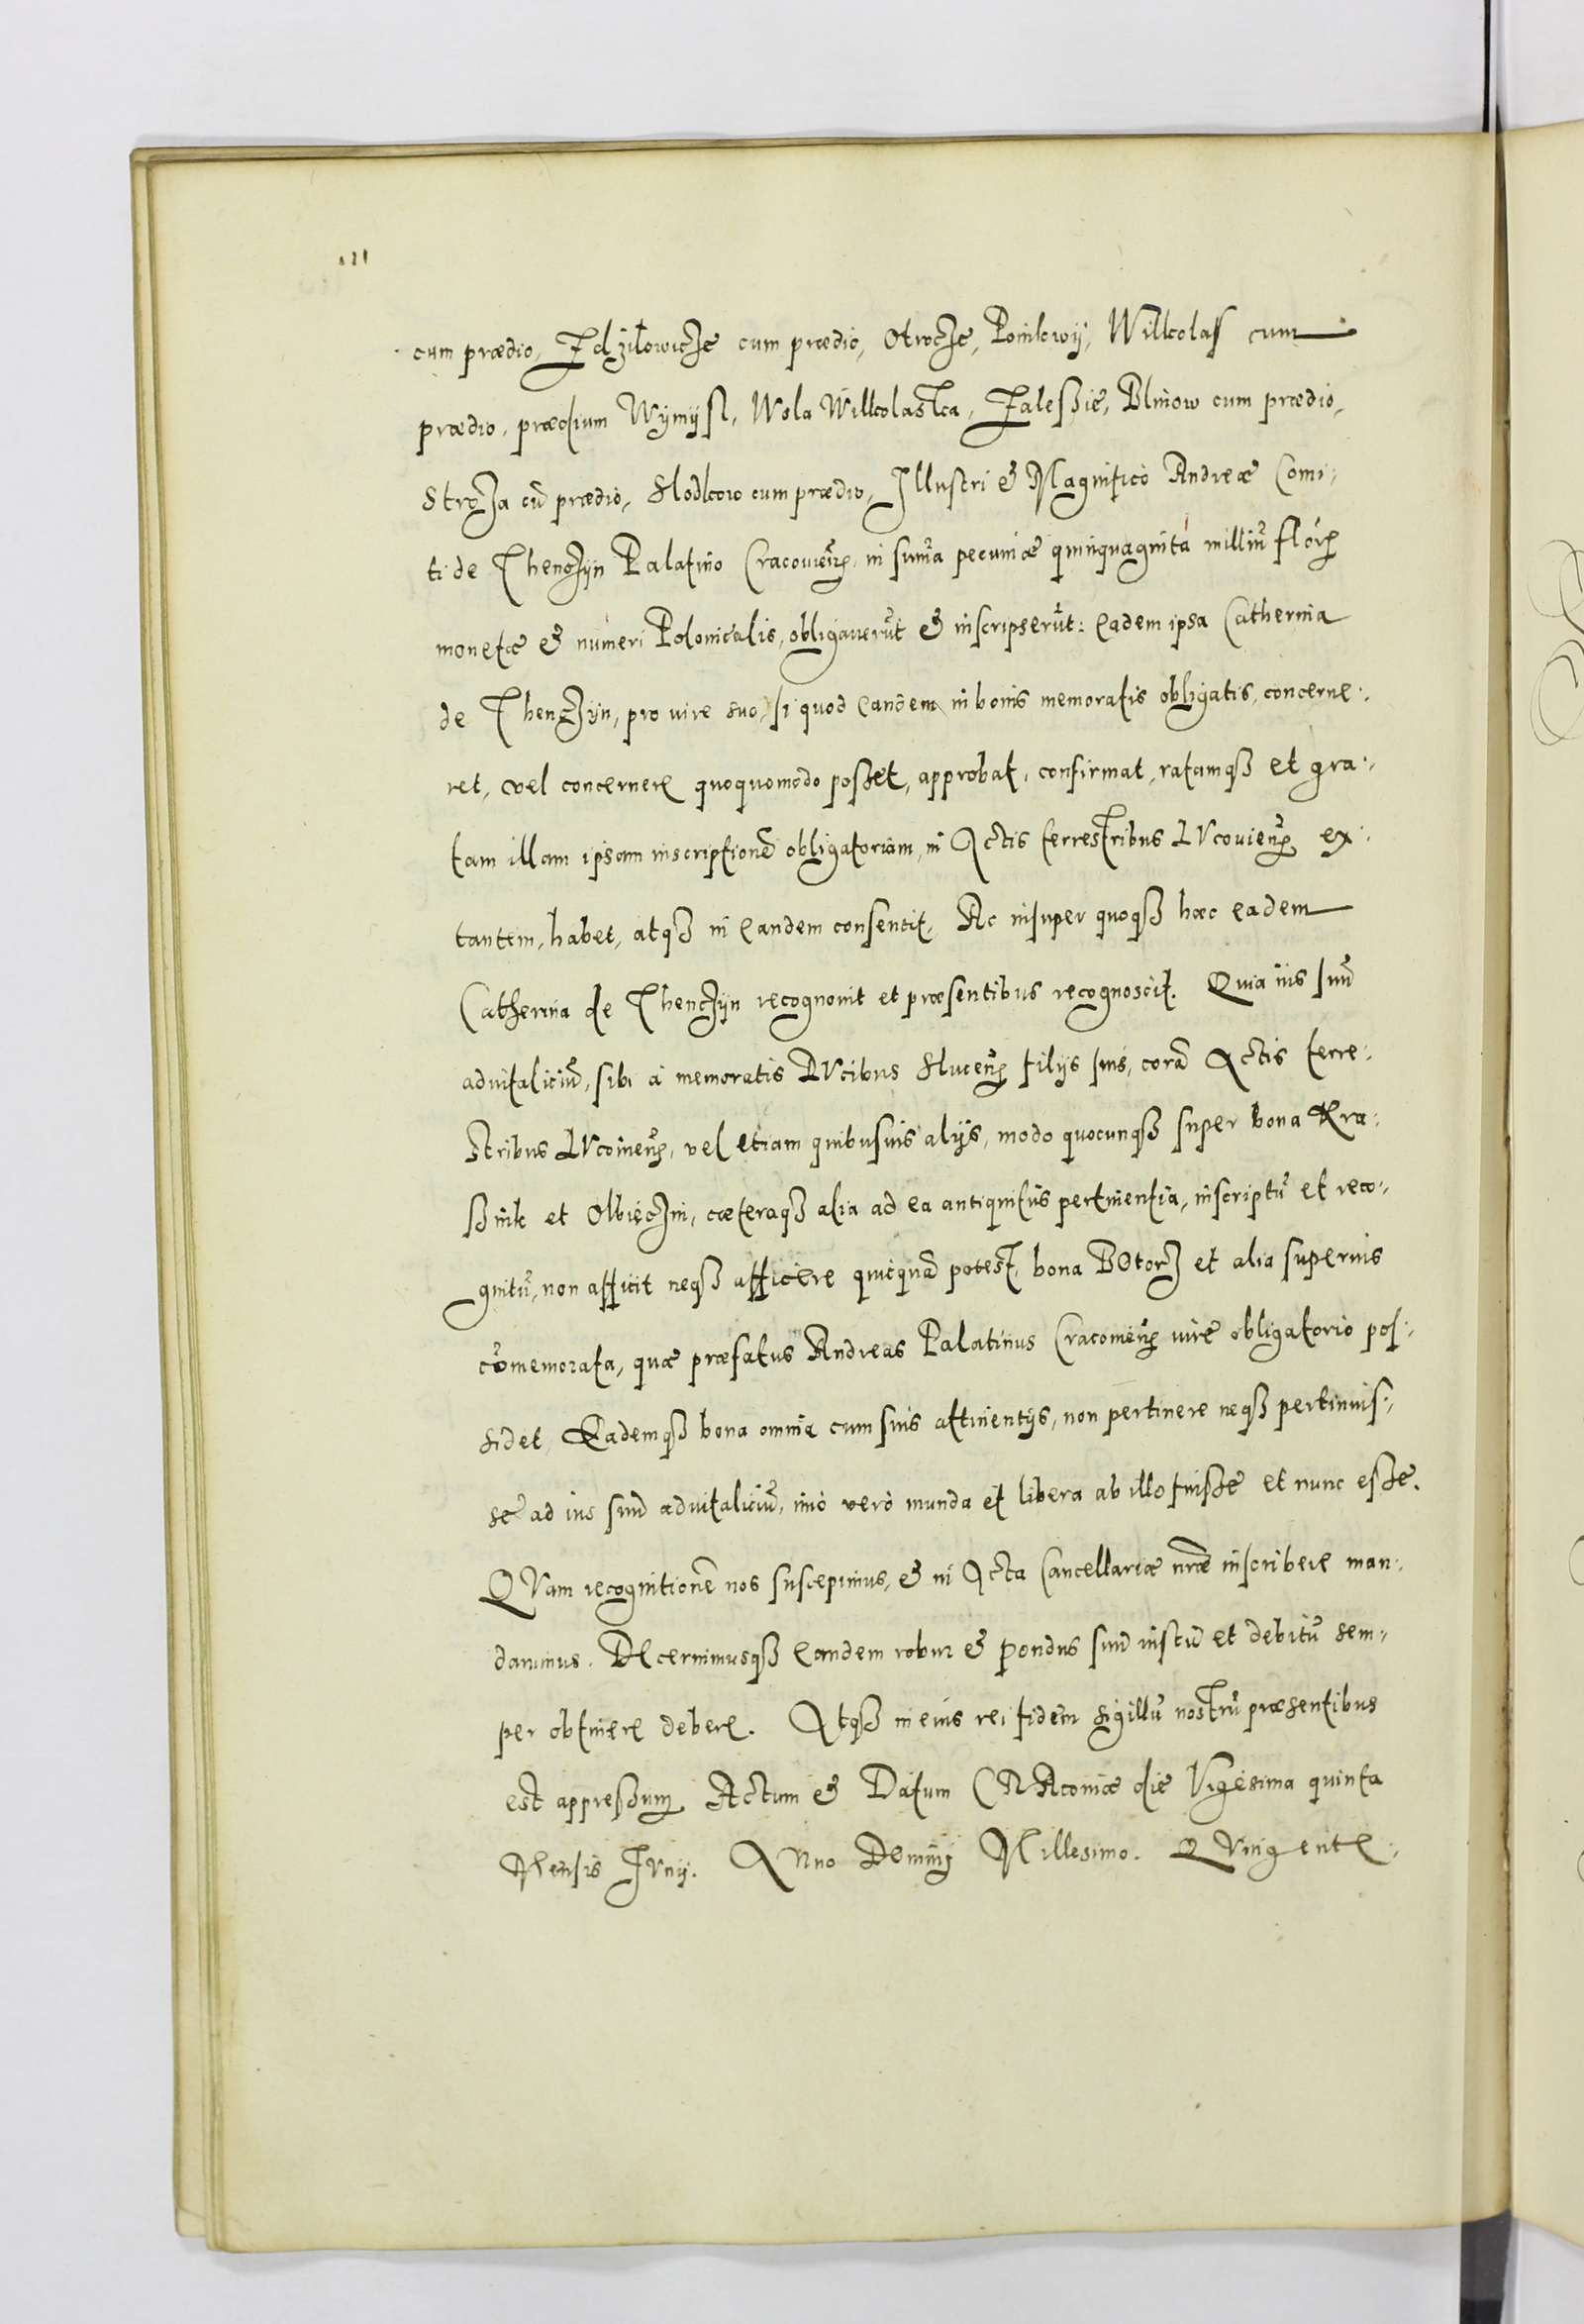 cum prædio, Zdzilowicze cum prædio, Otrocze, Ponikwij, Wilkolas cum
prædio, prædium Wymysl, Wola Wilkolaska, Zaleßie, Blinow cum prædio,
Stroza cũ prædio, Slodkow cum prædio, Illustri & Magnifico Andreæ Comi-
ti de Thenczyn Palatino Cracovieñ, in sum̃a pecuniæ quinquaginta milliũ flor
monetæ & numeri Polonicalis, obligaverũt & inscripserũt: eadem ipsa Catherina
de Thenczyn, pro iure suo, si quod eandem in bonis memoratis obligatis, concerne-
ret, vel concernere quoquomodo posset, approbat, confirmat, ratamq3 et gra-
tam illam ipsam inscriptionẽ obligatoriam, in Actis terrestribus LVcovieñ ex-
tantem, habet, atq3 in eandem consentit. Ac insuper quoq3 hæc eadem
Catherina de Thenczyn recognovit et præsentibus recognoscit. Quia ius suũ
advitaliciũ, sibi a memoratis DVcibus Sluceñ filijs suis, corã Actis terre-
stribus LVcovieñ, vel etiam quibusvis alijs, modo quocunq3 super bona Kra-
ßnik et Olbięczin, cæteraq3 alia ad ea antiquitus pertinentia, inscriptũ et reco-
gnitũ, non afficit neq3 afficere quicquã potest, bona BOtorz et alia superius
cõmemorata, quæ præfatus Andreas Palatinus Cracovieñ iure obligatorio pos-
sidet, Eademq3 bona omnia cum suis attinentijs, non pertinere neq3 pertinuis-
se ad ius suũ advitaliciũ, imò verò munda et libera ab illo fuisse et nunc esse.
QVam recognitionẽ nos suscepimus, & in Acta Cancellariæ nr̃æ inscribere man-
davimus. DEcernimusq3 eandem robur & pondus suũ iustũ et debitũ sem-
per obtinere debere. Atq3 in eius rei fidem sigillũ nostrũ præsentibus
est appressum. Actum & Datum CRAcoviæ die Vigesima quinta
Mensis IVnij. ANno Domini Millesimo. QVingente-